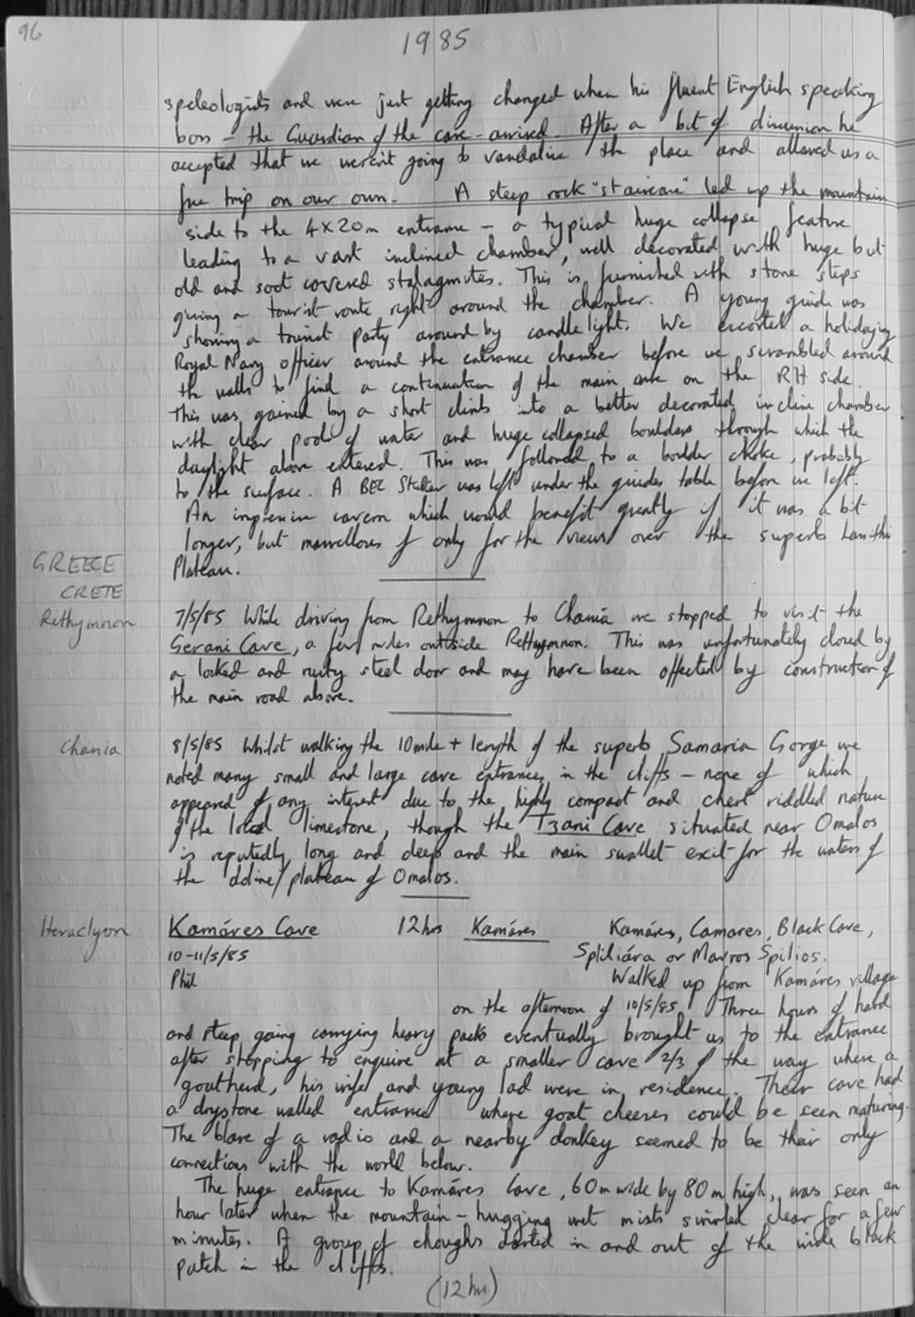 96
1985
speleologists and were just getting changed when his fluent English speaking
boss – the Guardian of the cave – arrived. After a bit of discussion he
accepted that we weren't going to vandalise the place and allowed us a
free trip on our own. A steep rock "staircase" led up the mountain
side to the 4x20m entrance – a typical huge collapse feature
leading to a vast inclined chamber, well decorated with huge but
old and soot covered stalagmites. This is furnished with stone steps
giving a tourist route right around the chamber. A young guide was
showing a tourist party around by candlelight. We escorted a holidaying
Royal Navy officer around the entrance chamber before we scrambled around
the walls to find a continuation of the main cave on the RH side.
This was gained by a short climb into a better decorated incline chamber
with clear pools of water and huge collapsed boulders through which the
daylight above entered. This was followed to a boulder choke, probably
to the surface. A BEC Sticker was left under the guides table before we left.
An impressive cavern which would benefit greatly if it was a bit
longer, but marvellous if only for the views over the superb Lassithi
Plateau.
GREECE
CRETE
Rethymnon
7/5/85 While driving from Rethymnon to Chania we stopped to visit the
Gerani Cave, a few miles outside Rethymnon. This was unfortunately closed by
a locked and rusty steel door and may have been affected by construction of
the main road above.
Chania
8/5/85 Whilst walking the 10mile + length of the superb Samaria Gorge we
noted many small and large cave entrances in the cliffs – none of which
appeared of any interest due to the highly compact and chert riddled nature
of the local limestone, though the Tzani Cave situated near Omalos
is reputedly long and deep and the main swallet exit for the waters of
the doline/plateau of Omalos.
Heraclyon
Kamáres Cave 12hrs Kamáres Kamáres, Camares, Black Cave,
10-11/5/85 Spiliára or Mavros Spilios.
Phil Walked up from Kamáres village
on the afternoon of 10/5/85. Three hours of hard
and steep going carrying heavy packs eventually brought us to the entrance
after stopping to enquire at a smaller cave 2/3 of the way where a
goatherd, his wife and young lad were in residence. Their cave had
a drystone walled entrance where goat cheeses could be seen maturing.
The blare of a radio and a nearby donkey seemed to be their only
connections with the world below.
The huge entrance to Kamáres Cave, 60m wide by 80m high, was seen an
hour later when the mountain-hugging wet mists swirled clear for a few
minutes. A group of choughs darted in and out of the wide black
patch in the cliffs.
(12hr)